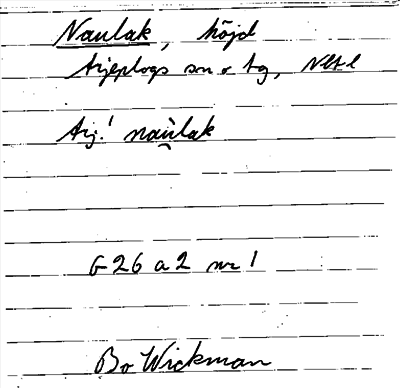 Naulak, höjd
Arjeplogs sn o tg, Nlt l
Arj. ! naùlak
G 26 a 2 nr 1
Bo Wickman